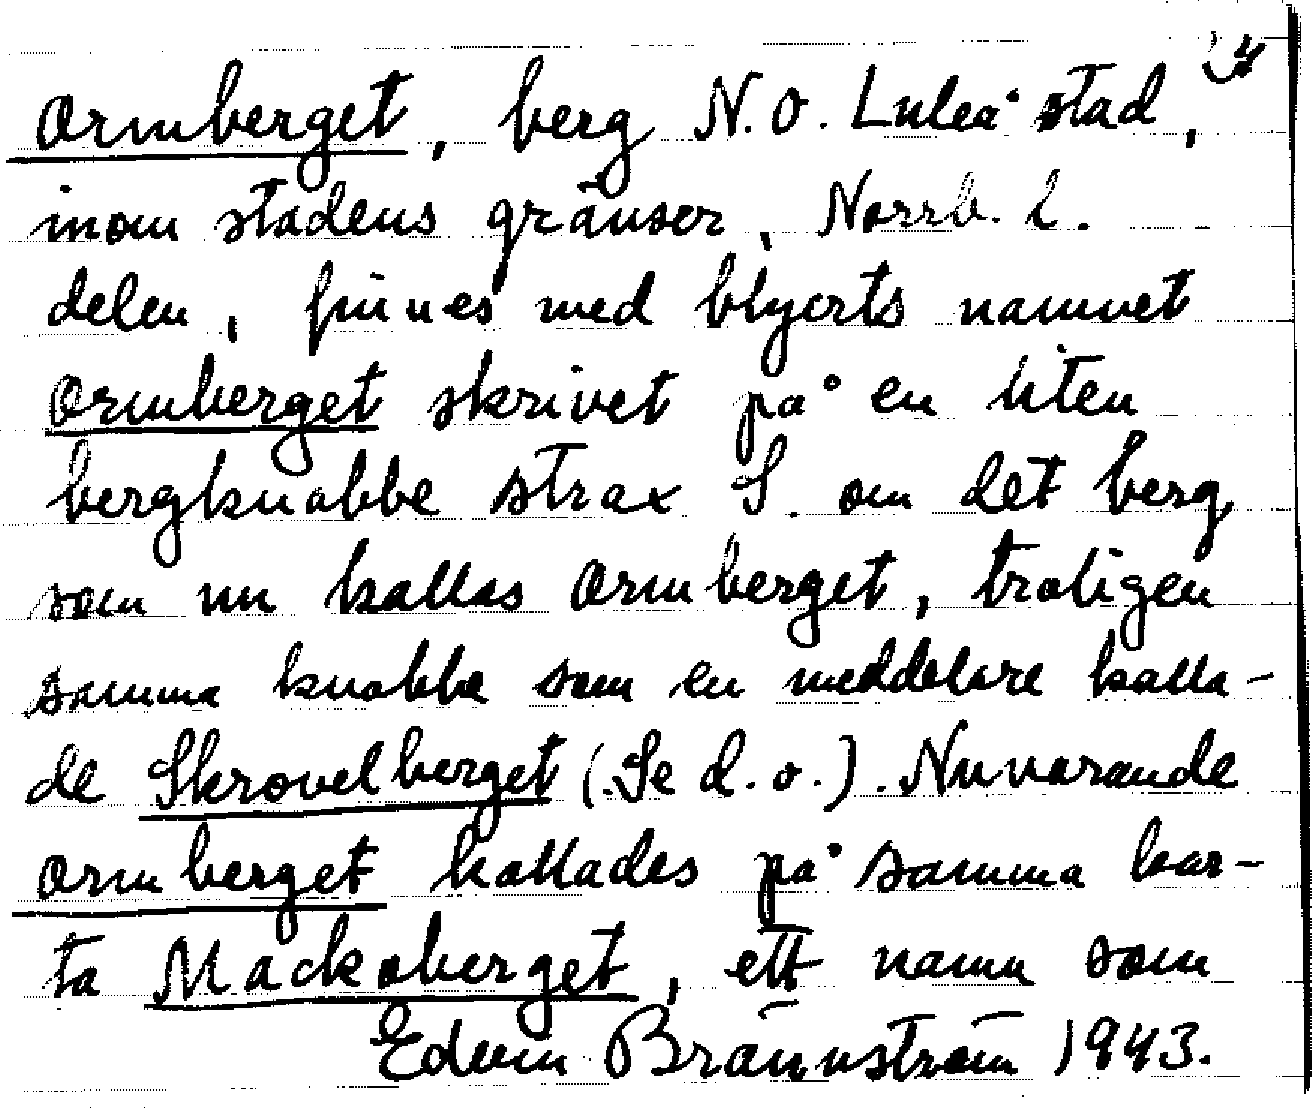 Ormberget, berg N.O. Luleå stad,
inom stadens gränser, Norrb. l.
delen, finnes med blyerts namnet
Ormberget skrivet på en liten
bergknabbe strax S. om det berg
som nu kallas Ormberget, troligen
samma knabbe som en meddelare kalla-
de Skrovelberget (Se d. o.). Nuvarande
Ormberget kallades på samma kar-
ta Mackaberget, ett namn som
Edvin Brännström 1943.